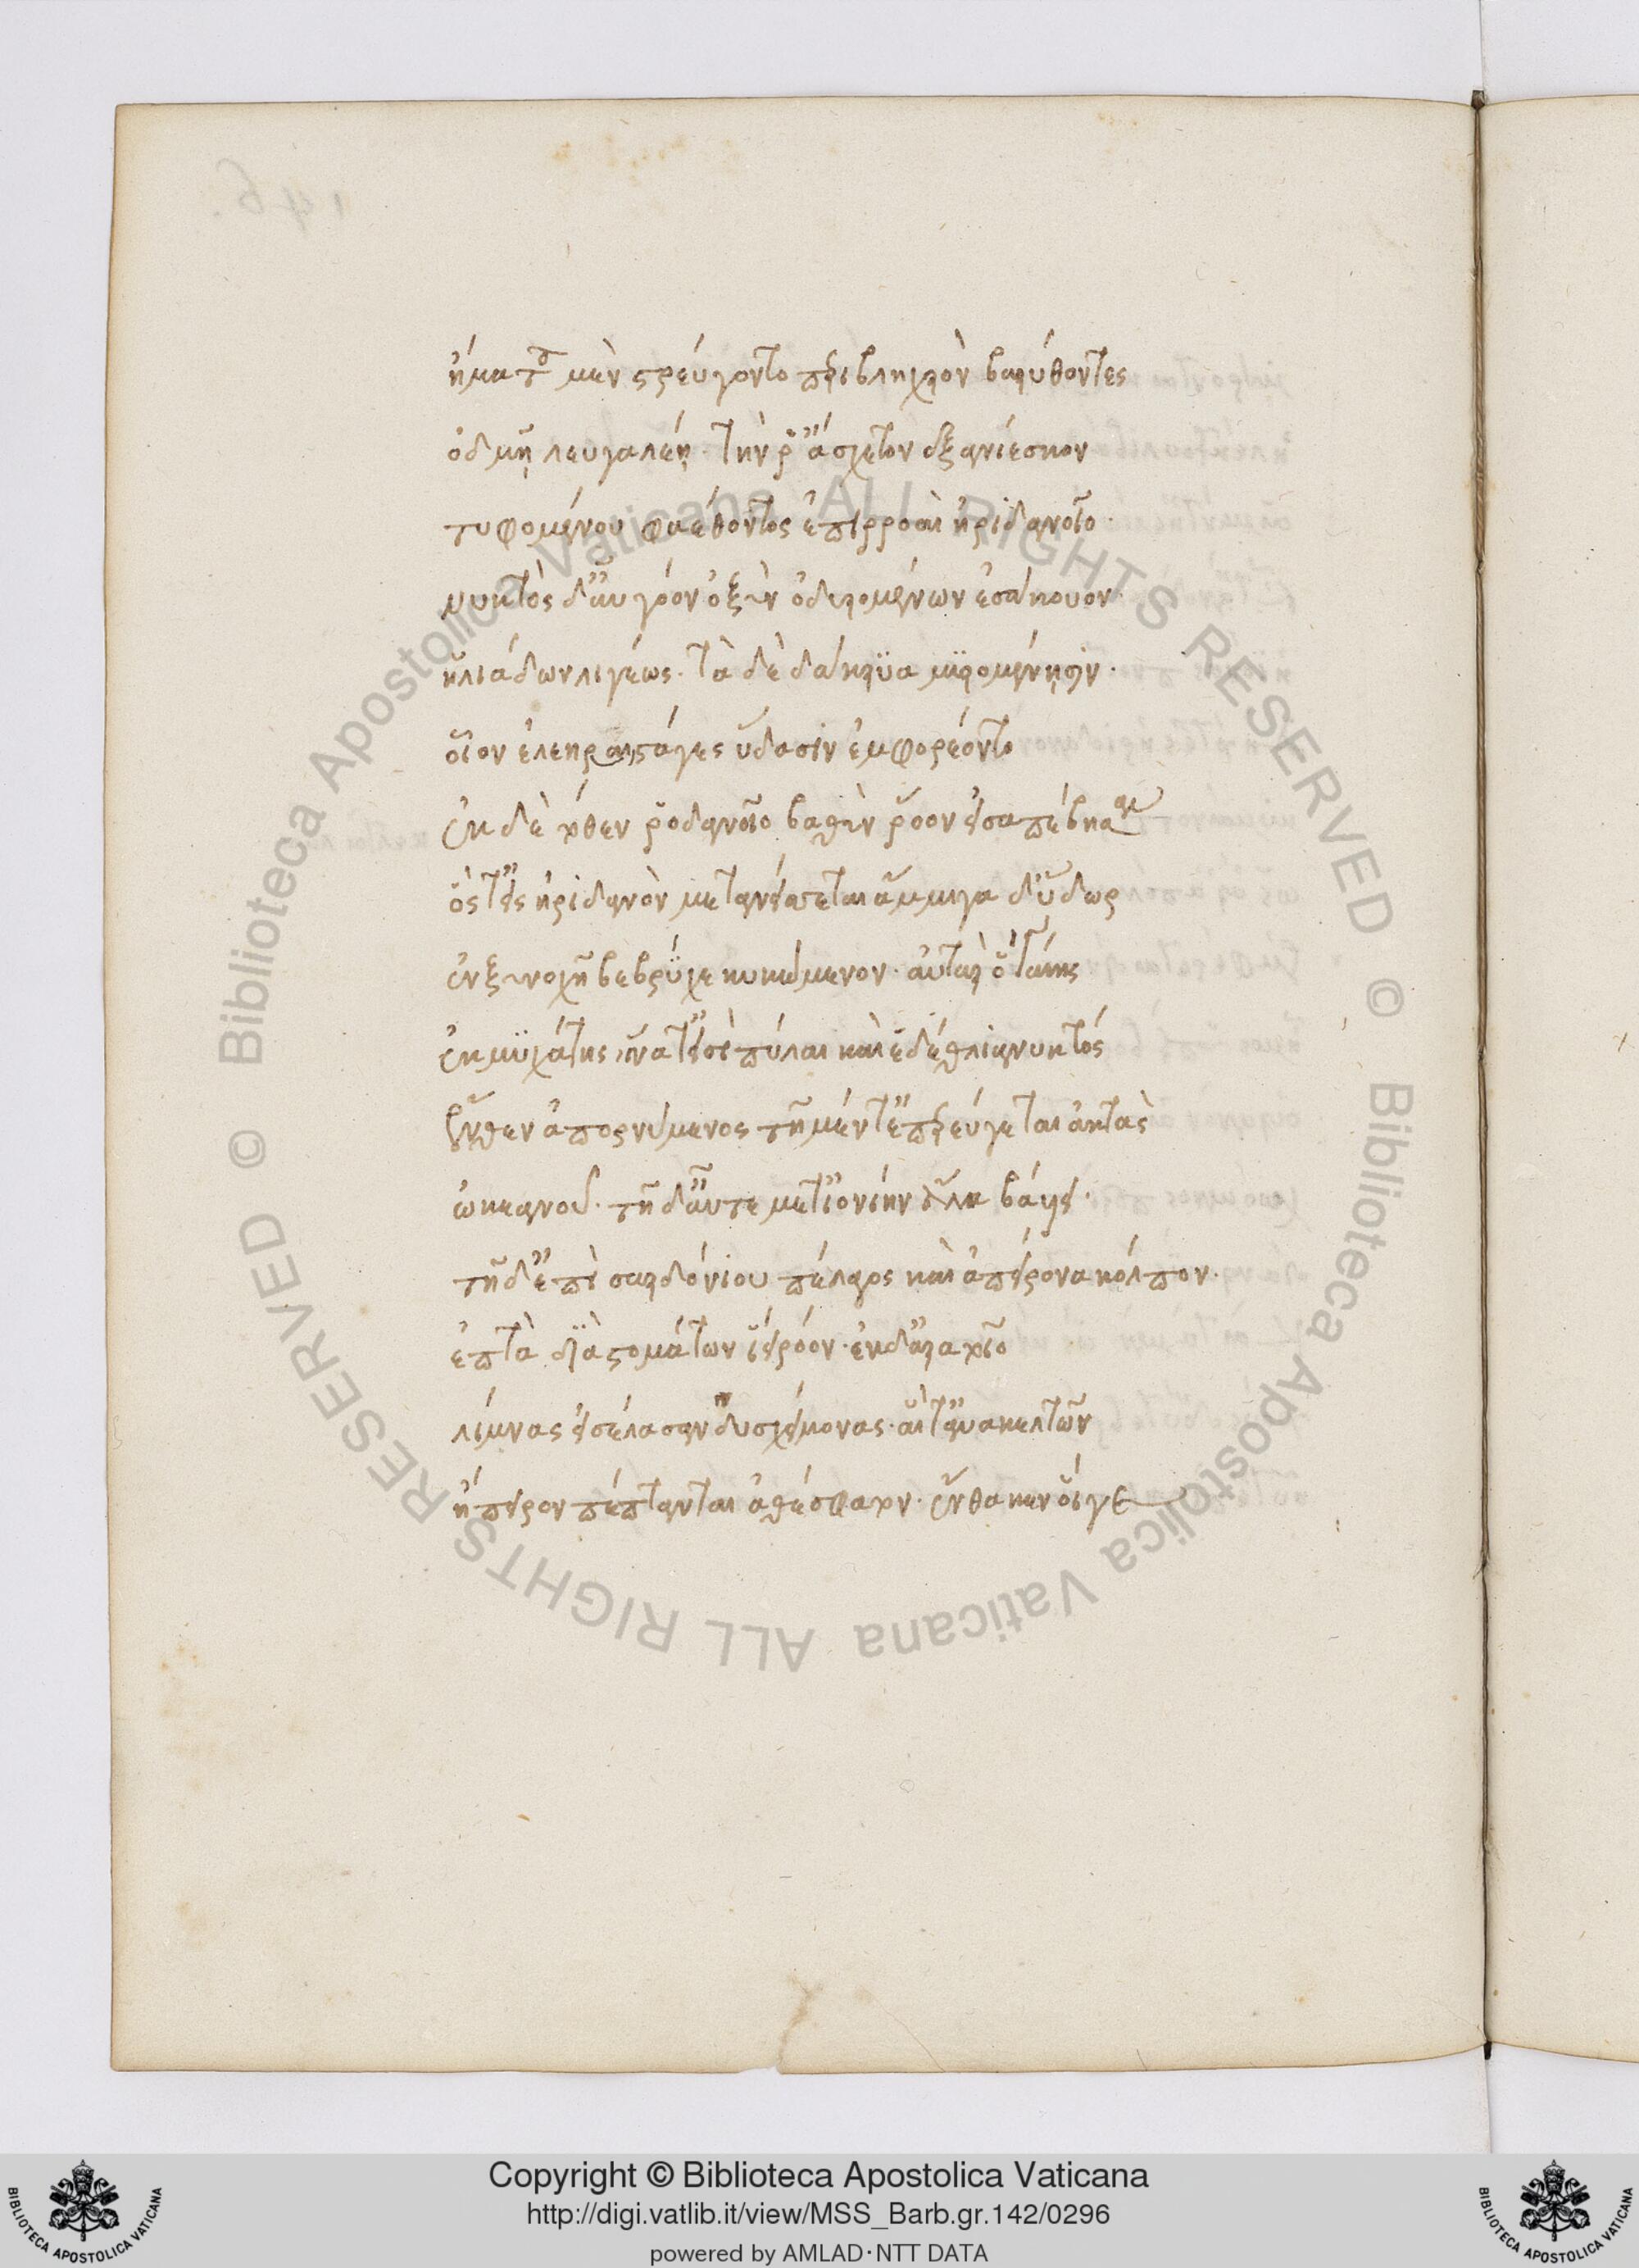 ἤματος μὲν στρεύγοντο περιβληχρὸν βαρύθοντες
ὀδμῇ λευγαλέῃ. τὴν ῥ' ἄσχετον ἐξανίεσκον
τυφομένου φαέθοντος ἐπιρροαὶ ἠριδανοῖο.
νυκτὸς δ' αὖ γόον ὀξὺν ὀδυρομένων ἐσάκουον.
ἡλιάδων λιγέως. τὰ δὲ δάκρυα μυρομένῃσιν.
οἷον ἐλεηραὶ στάγες ὕδασιν ἐμφορέοντο
ἐκ δὲ τόθεν ῥοδανοῖο βαθὺν ῥόον εἰσαπέβησαν
ὅς τ' εἰς ἠριδανὸν μετανείσεται ἄμμιγα δ' ὕδωρ
ἐν ξυνοχῇ βεβρύχε κυκώμενον. αὐτὰρ ὅ γαίης
ἐκ μυχάτης, ἵνα τ' εἰσὶ πύλαι καὶ ἐδέθλια νυκτός
ἔνθεν ἀπορνύμενος τῇ μέν τ' ἐπερεύγεται ἀκτὰς
ὠκεανοῦ. τῇ δ' αὖτε μετ' ἰονίην ἅλα βάλλει.
τῇ δ' ἐπὶ σαρδόνιον πέλαγος καὶ ἀπείρονα κόλπον.
ἑπτὰ διὰ στομάτων ἵει ρόον. ἐκ δ' ἄρα τοῖο
λίμνας εἰσέλασαν δυσχείμονας. αἵ τ' ἀνα κελτῶν
ἤπειρον πέπτανται ἀθέσφατον. ἔνθα κεν οἵγε
Copyright © Biblioteca Apostolica Vaticana
http://digi.vatlib.it/view/MSS_Barb.gr.142/0296
powered by AMLAD·NTT DATA